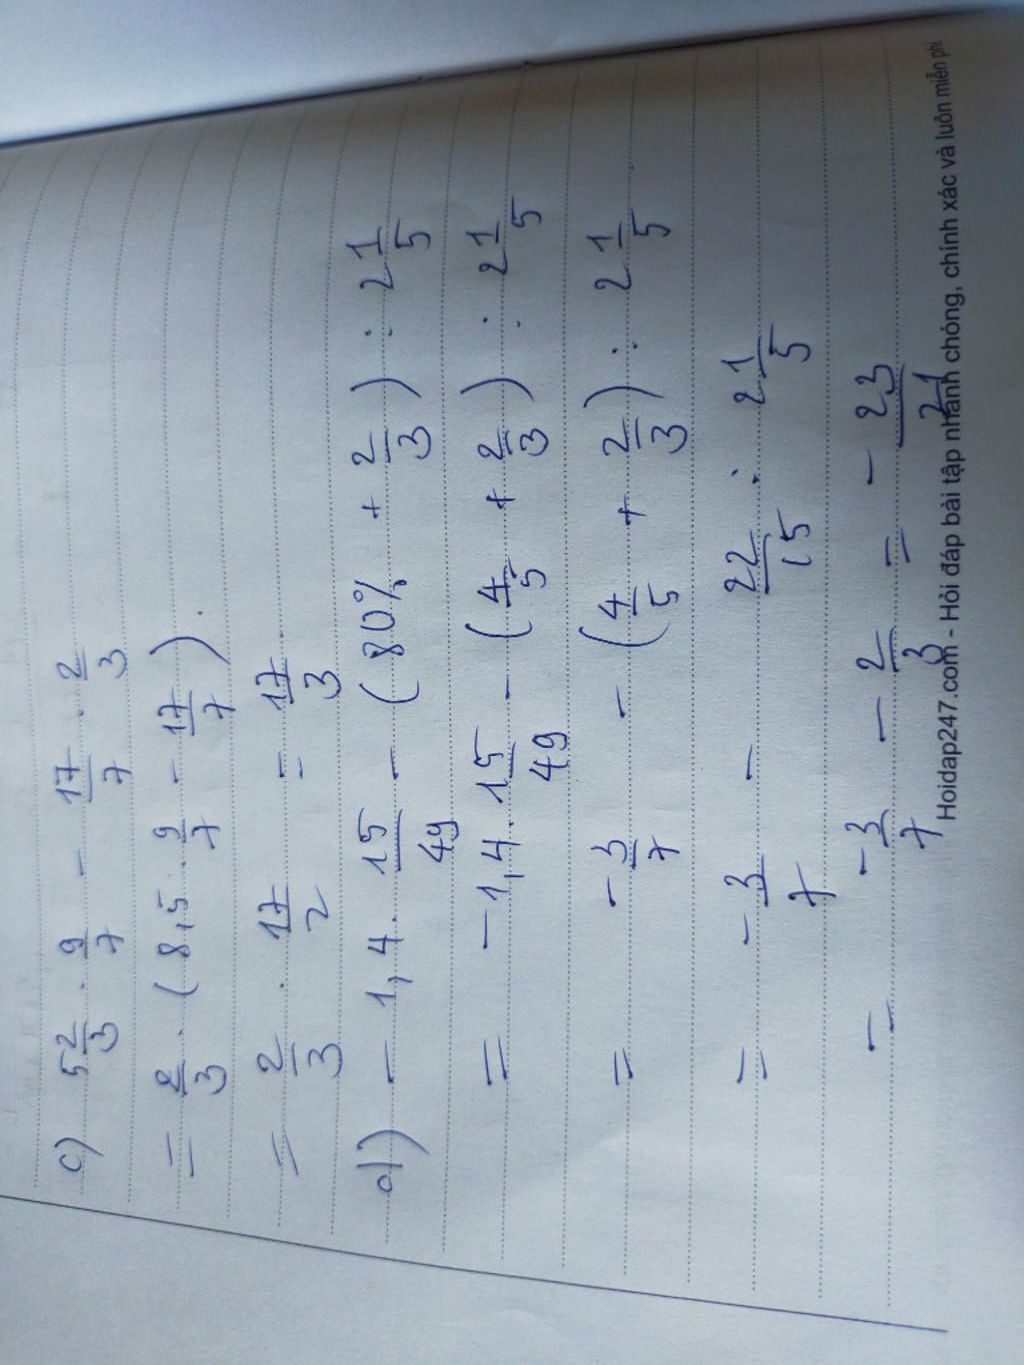 c) 5 2/3 . 9/7 - 17/7 . 2/3
= 2/3 . (8,5 . 9/7 - 17/7).
= 2/3 . 17/2 = 17/3
d) - 1,4 . 15/49 - (80% + 2/3) : 2 1/5
= - 1,4 . 15/49 - (4/5 + 2/3) : 2 1/5
= - 3/7 - (4/5 + 2/3) : 2 1/5
= - 3/7 - 22/15 : 2 1/5
= - 3/7 - 2/3 = - 23/21
Hoidap247.com - Hỏi đáp bài tập nhanh chóng, chính xác và luôn miễn phí